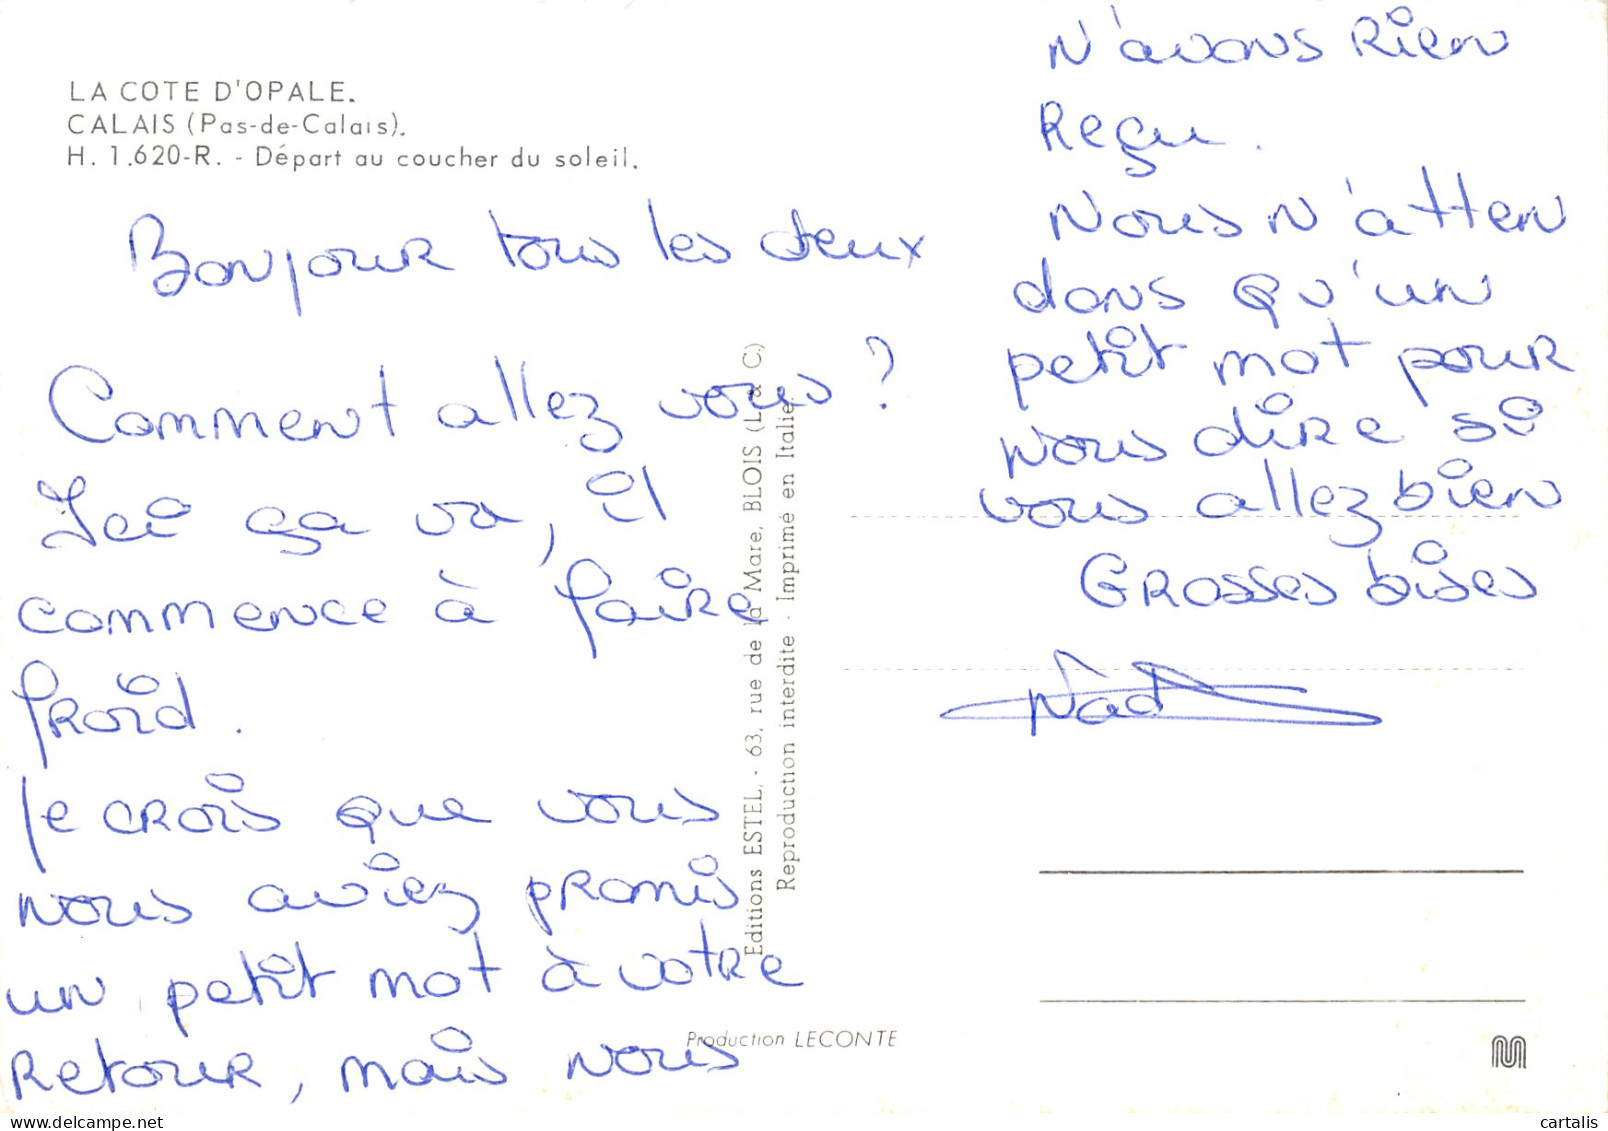 LA COTE D'OPALE.
CALAIS (Pas-de-Calais).
H. 1.620-R. - Départ au coucher du soleil.
Bonjour tous les deux
Comment allez vous ?
Ici ça va, il
commence à faire
froid.
Je crois que vous
nous aviez promis
un petit mot à votre
retour, mais nous
n'avons rien
reçu.
Nous n'atten
dons qu'un
petit mot pour
nous dire si
vous allez bien
Grosses bises
Nad
Editions ESTEL, - 63, rue de la Mare, BLOIS (L. & C.)
Reproduction interdite - Imprimé en Italie
Production LECONTE
cartalis
delcampe.net